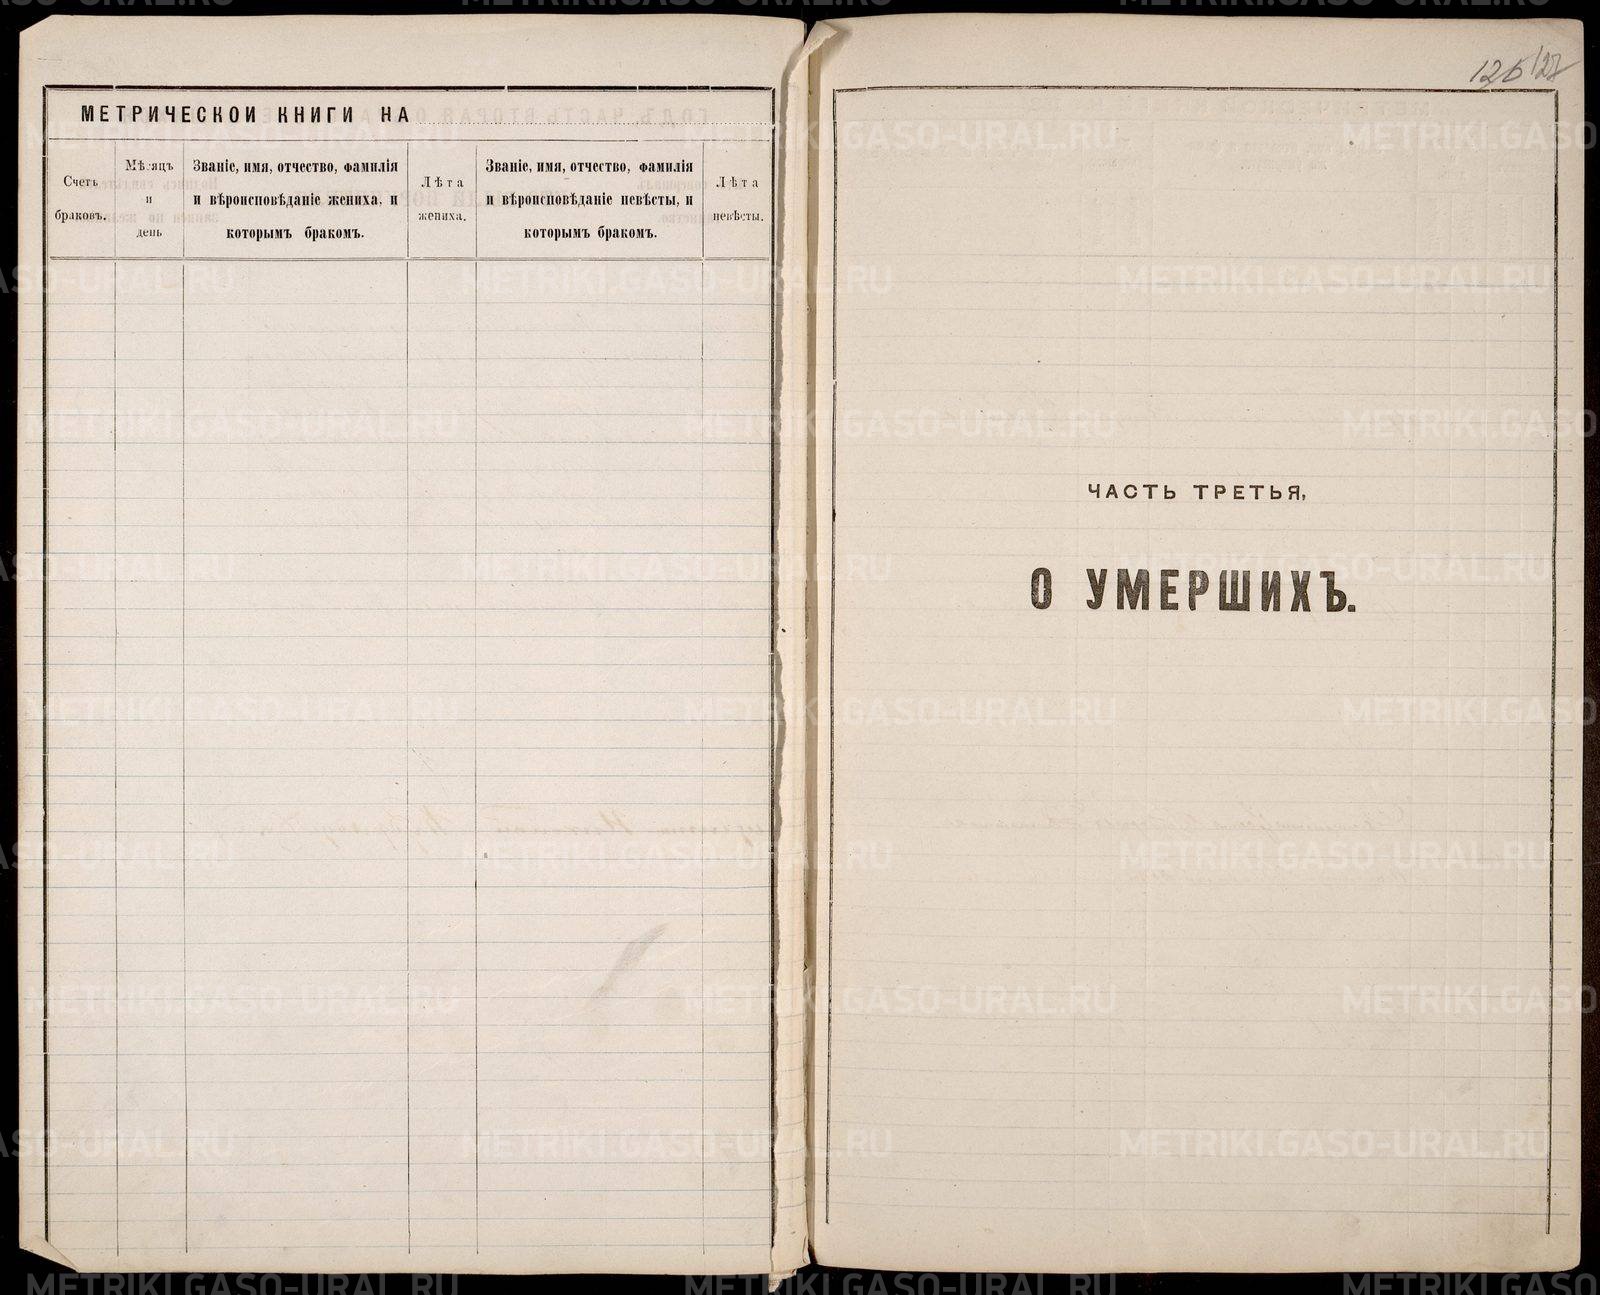 МЕТРИЧЕСКОЙ КНИГИ НА
Счетъ
браковъ.
Мѣсяцъ
и
день
Званіе, имя, отчество, фамилія
и вѣроисповѣданіе жениха, и
которымъ бракомъ.
Лѣта
жениха.
Званіе, имя, отчество, фамилія
и вѣроисповѣданіе невѣсты, и
которымъ бракомъ.
Лѣта
невѣсты.
127
ЧАСТЬ ТРЕТЬЯ,
О УМЕРШИХЪ.
METRIKI.GASO-URAL.RU